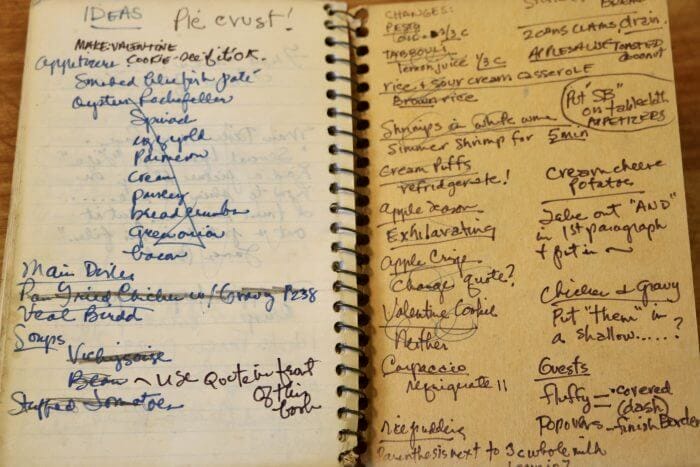 IDEAS Pie crust!
MAKE VALENTINE
Appetizers COOKIE - See if it's OK.
Smoked bluefish paté
Oysters Rockefeller
Spinach
egg yolk
Parmesan
Cream
parsley
breadcrumbs
Green onion
bacon
Main Dishes
Pan Fried Chicken w/ Gravy P238
Veal Birds
Soups
Vichyssoise
Bean ~ USE Quote in front
of this
book
Stuffed Tomatoes
CHANGES:
PESTO
1/3 c
TABBOULI
lemon juice 1/3 c
rice & sour cream casserole
Brown rice
Shrimps in white wine
Simmer shrimp for 5 min
Cream Puffs
refridgerate!
apple
Exhilarating
apple Crisp
Change quote?
Valentine Cookie
Neither
Carpaccio
refrigerate
rice pudding
Parenthesis next to 3 c whole milk
2 cans CLAMS, drain.
APPLESAUCE TOASTED
Put "SB"
on tablecloth
APPETIZERS
Cream cheese
Potatoes
Take out "AND"
in 1st paragraph
& put in ~
Chicken & Gravy
Put "them" in
a shallow.....?
Guests
fluffy = covered
(dash)
Popovers - finish Border